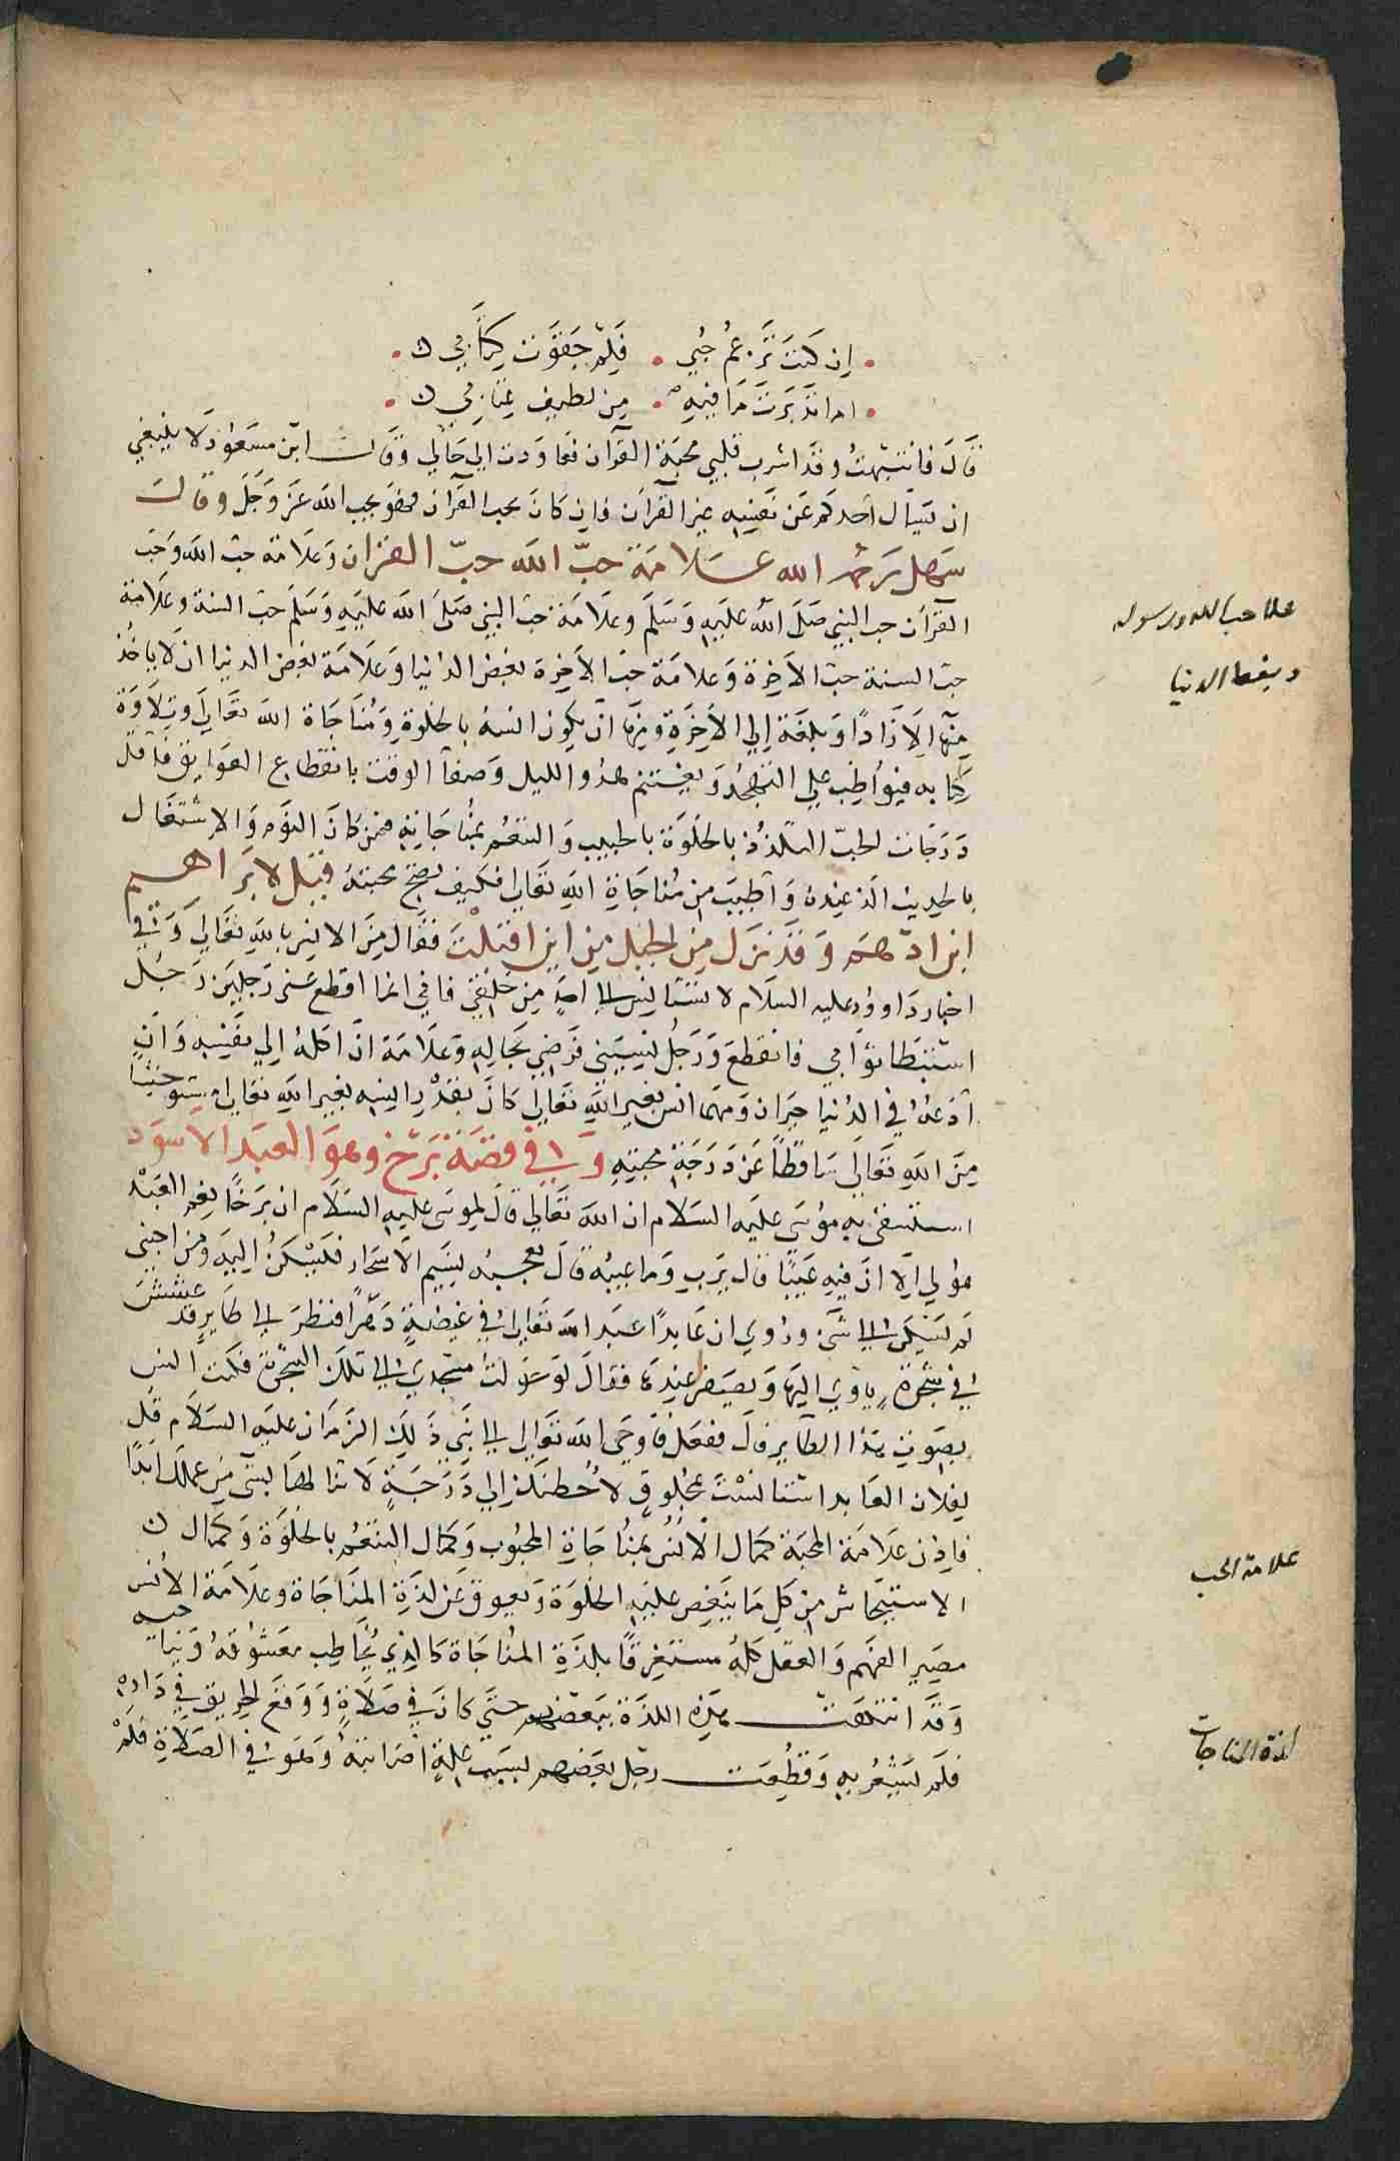 ان كنت تزعم حبي فلم جفوت كتابي
اما تدبرت ما فيه من لطيف عتابي
قال فانتبهت وقد اشرب قلبي محبة القرآن فعاودت الي حالي وقال ابن مسعود لا ينبغي
ان يسال احدكم عن نفسه غير القرآن فان كان يحب القرآن فهو يحب الله عز وجل وقالت
سهل رحمه الله علامة حبّ الله حبّ القران وعلامة حب الله وحب
القرآن حب النبي صلى الله عليه وسلم وعلامة حب النبي صلى الله عليه وسلم حب السنة وعلامة
حب السنة حب الآخرة وعلامة حب الآخرة بغض الدنيا وعلامة بغض الدنيا ان لا ياخذ
منها الا زادًا وبلغة إلي الآخرة ومنها ان يكون انسه بالخلوة ومناجاة الله تعالي وتلاوة
كتابه فيواظب علي التهجد ويغتنم هدو الليل وصفآ الوقت بانقطاع العوايق فاقل
درجات الحبّ التلذذ بالخلوة بالحبيب والتنعم بمناجاته فمن كان النوم والاشتغال
بالحديث الذ عنده واطيب من مناجاة الله تعالي فكيف تصح محبته قيل لابراهيم
ابن ادهم وقد نزل من الجبل من اين اقبلت فقال من الانس بالله تعالي وفي
اخبار داوود عليه السلام لا تستانس الي احد من خلقي فاني انما اقطع عني رجلين رجل
استبطا ثوابي فانقطع ورجل نسيني فرضي بحاله وعلامة ان اكله الي نفسه وان
ادعه في الدنيا حيران ومهما انس بغير الله تعالي كان بقدر انسه بغير الله تعالي مستوحشا
من الله تعالي ساقطا عن درجة محبته وفي قصّة برخ وهو العبد الاسود
استسقى به موسى عليه السلام ان الله تعالي قال لموسى عليه السلام ان برخًا نعم العبد
هو لي الا ان فيه عيبًا قال يرب وما عيبه قال يعجبه نسيم الاسحار فيسكن اليه ومن احبني
لم يسكن الي شيء وروي ان عابدًا عبد الله تعالي في غيضة دهرًا فنظر الي طاير قد عشش
في شجرة ياوي اليها ويصفر عندها فقال لو حولت مسجدي الي تلك الشجرة فكنت انس
بصوت هذا الطاير قال ففعل فاوحي الله تعالي الي نبي ذلك الزمان عليه السلام قل
لفلان العابد استانست بمخلوق لاحطنك إلي درجة لا تنالها بشي من عملك ابدًا
فاذن علامة المحبة كمال الانس بمناجاة المحبوب وكمال التنعم بالخلوة وكمال
الاستيحاش من كل ما ينغص عليه الخلوة ويعوق عن لذة المناجاة وعلامة الانس
مصير الفهم والعقل كله مستغرقًا بلذة المناجاة كالذي يخاطب معشوقه ويناجيه
وقد انتهت هذه اللذة ببعضهم حتي كان في صلاة ووقع الحريق في داره
فلم يشعر به وقطعت رجل بعضهم بسبب علة اصابته وهو في الصلاة فلم
علامة حب الله ورسوله
وبغض الدنيا
علامة الحب
لذة المناجات